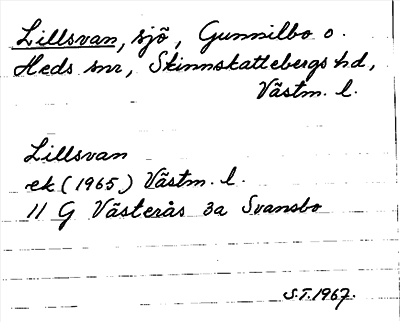 Lillsvan, sjö, Gunnilbo o.
Heds snr, Skinnskattebergs hd,
Västm. l.
Lillsvan
ek (1965) Västm. l.
11 G Västerås 3a Svansbo
S.T. 1967.